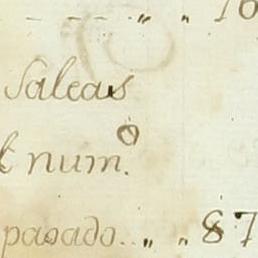 - - - - „ „ 16
Saleas
l num.º
pasado.. „ „ 87